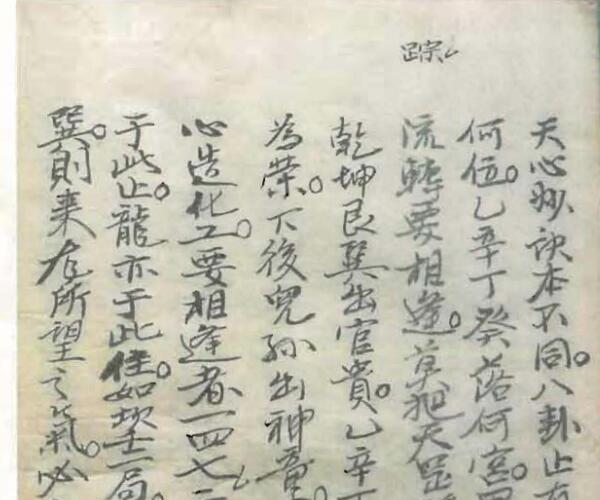 踪
天心妙訣本不同。八卦止
何位。乙辛丁癸落何宮。
流轉要相逢。莫把天罡
乾坤艮巽出官貴。乙辛丁
為榮。下後兒孫出神童
心造化工。要相逢者一四七
于此止。龍亦于此住。如坎一局
巽。則來在所望之氣。必